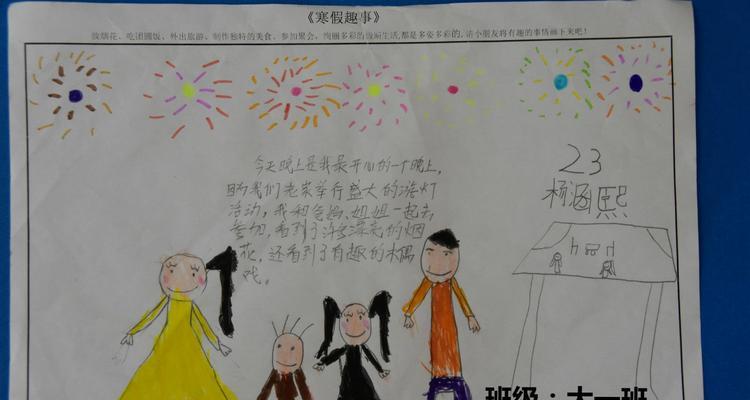 《寒假趣事》
放烟花、吃团圆饭、外出旅游、制作独特的美食、参加聚会，绚丽多彩的假期生活,都是多姿多彩的,请小朋友将有趣的事情画下来吧！
今天晚上是我最开心的一个晚上，
因为我们老家举行盛大的游灯
活动，我和爸妈、姐姐一起去
参加，看到了许多漂亮的烟
花，还看到了有趣的木偶
戏。
23
杨涵熙
班级：大一班